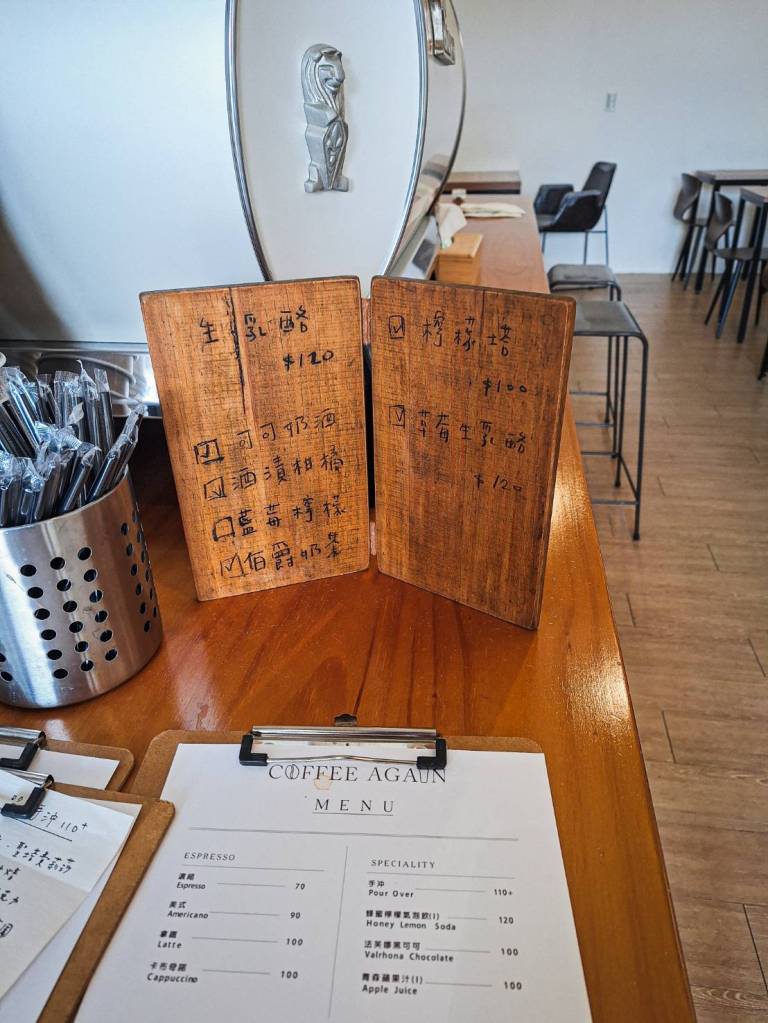 生乳酪
$120
可可奶酒
酒漬柑橘
藍莓檸檬
伯爵奶紫
檸檬塔
$100
草莓生乳酪
$120
COFFEE AGAIN
MENU
ESPRESSO
濃縮
Espresso 70
美式
Americano 90
拿鐵
Latte 100
卡布奇諾
Cappuccino 100
SPECIALITY
手沖
Pour Over 110+
蜂蜜檸檬氣泡飲(I)
Honey Lemon Soda 120
法芙娜黑可可
Valrhona Chocolate 100
青森蘋果汁(I)
Apple Juice 100
沖110+